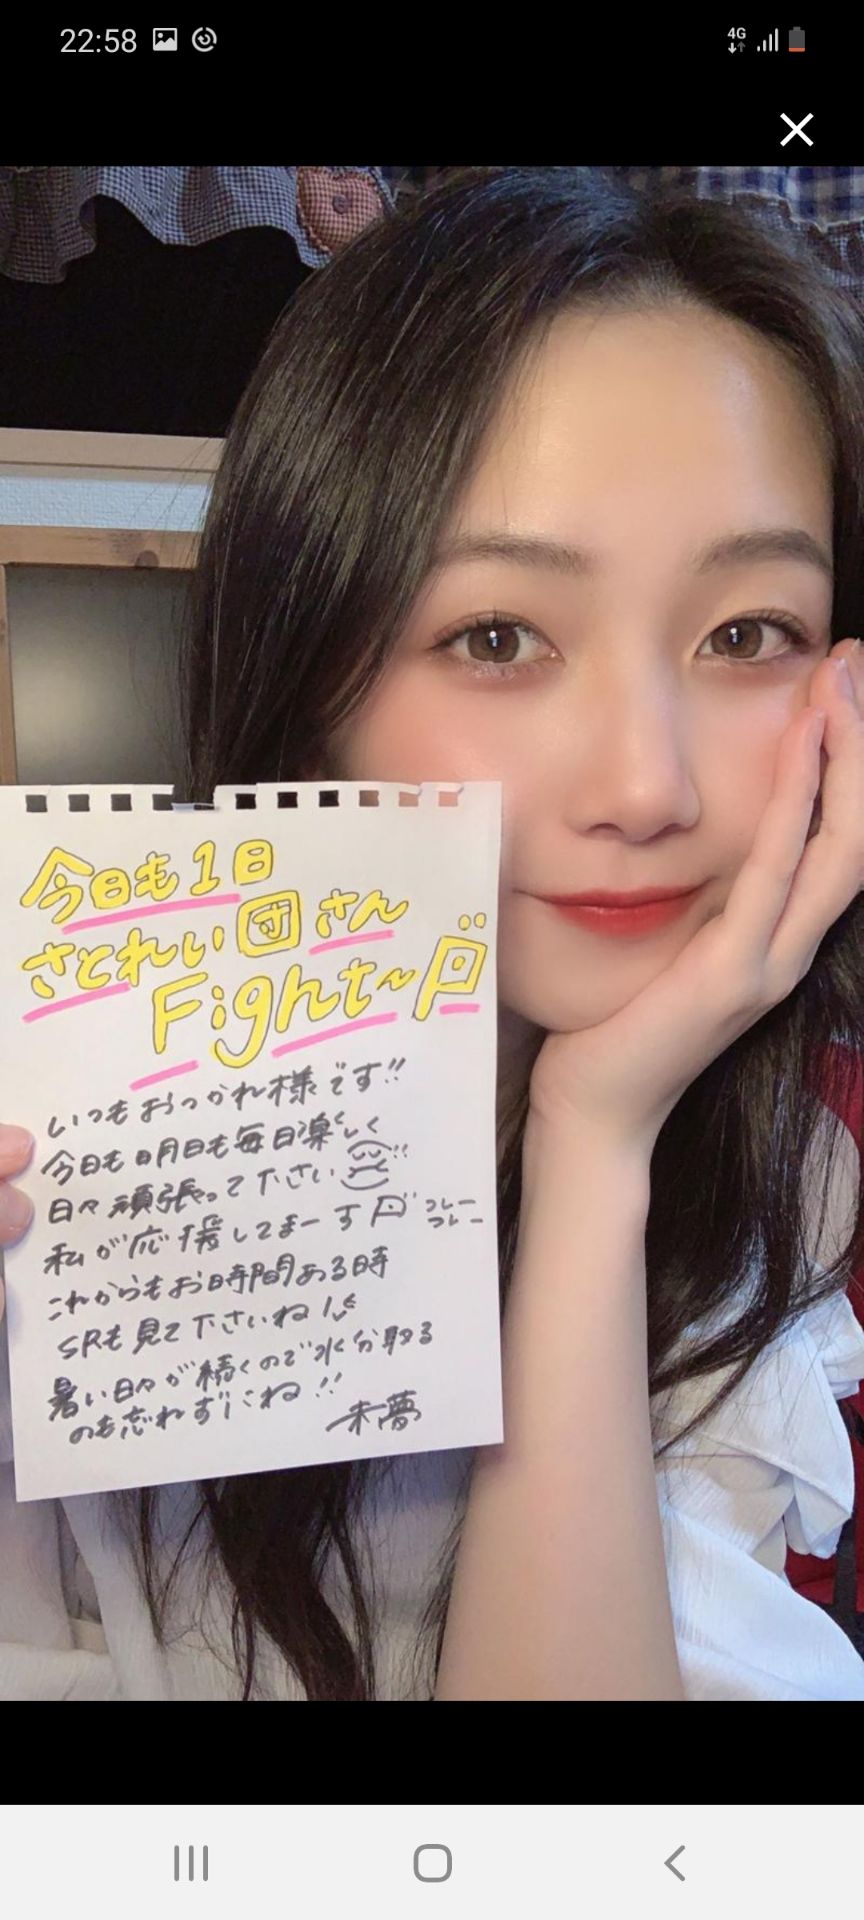 22:58
4G
今日も1日
さとれい団さん
Fight〜
いつもおつかれ様です!!
今日も明日も毎日楽しく
日々頑張って下さい!!
私が応援してまーす フレーフレー
これからもお時間ある時
SRも見て下さいね!
暑い日々が続くので水分取る
のも忘れずにね!!
朱夢